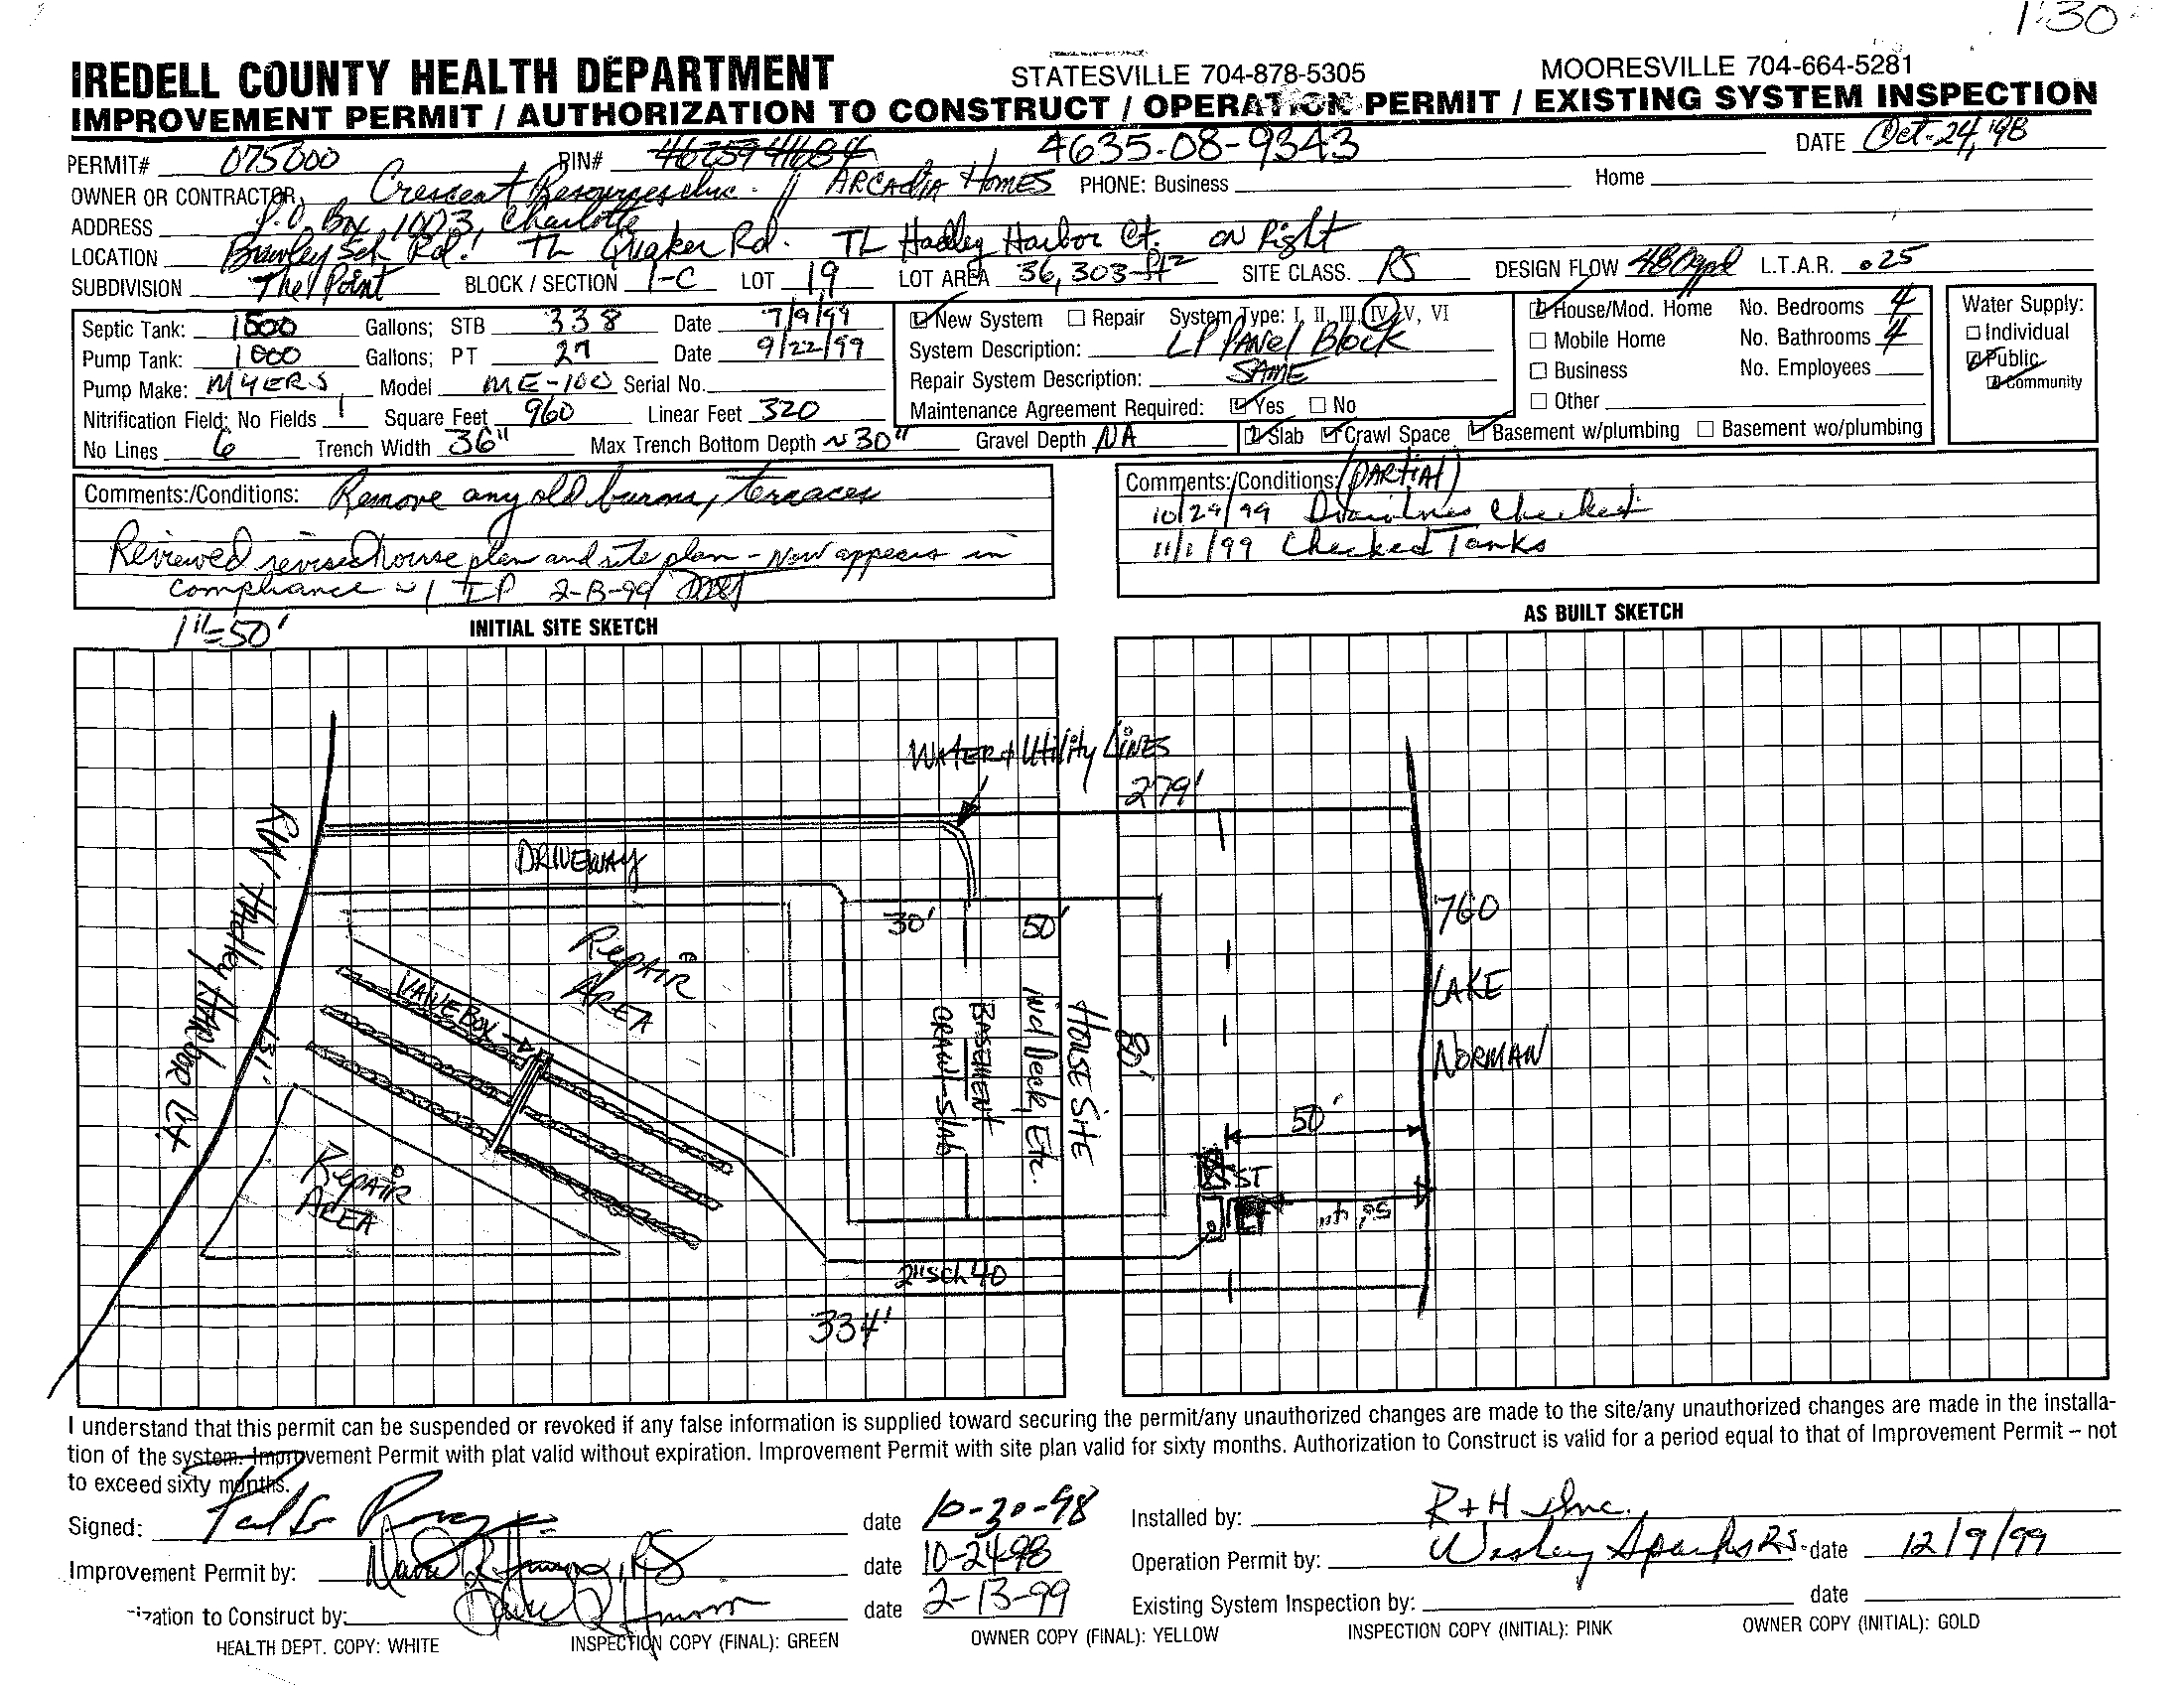 1:30
IREDELL COUNTY HEALTH DEPARTMENT STATESVILLE 704-878-5305 MOORESVILLE 704-664-5281
IMPROVEMENT PERMIT / AUTHORIZATION TO CONSTRUCT / OPERATION PERMIT / EXISTING SYSTEM INSPECTION
PERMIT# 075000 PIN# 4635-08-9343 DATE Oct-24,'98
OWNER OR CONTRACTOR Crescent Resources Inc. // ARCADIA HOMES PHONE: Business Home
ADDRESS P.O. Box 1003, Charlotte
LOCATION Brawley Sch Rd! TL Quaker Rd. TL Hadley Harbor Ct. on Right
SUBDIVISION The Point BLOCK / SECTION 1-C LOT 19 LOT AREA 36,303 ft² SITE CLASS. PS DESIGN FLOW 480gpd L.T.A.R. .25
Septic Tank: 1500 Gallons; STB 338 Date 7/9/99
Pump Tank: 1000 Gallons; PT 27 Date 9/22/99
Pump Make: MYERS Model ME-100 Serial No.
Nitrification Field: No Fields 1 Square Feet 960 Linear Feet 320
No Lines 6 Trench Width 36" Max Trench Bottom Depth ~30" Gravel Depth NA
New System Repair System Type: I, II, III, IV, V, VI
System Description: LP PANEL Block
Repair System Description: SAME
Maintenance Agreement Required: Yes No
Slab Crawl Space Basement w/plumbing Basement wo/plumbing
House/Mod. Home No. Bedrooms 4
Mobile Home No. Bathrooms 4
Business No. Employees
Other
Water Supply:
Individual
Public
Community
Comments:/Conditions: Remove any old burms, terraces
Reviewed revised house plan and site plan - Now appears in
compliance w/ IP 2-13-99
Comments:/Conditions: (PARTIAL)
10/29/99 Drainlines Checked
11/1/99 Checked Tanks
1"=50' INITIAL SITE SKETCH
AS BUILT SKETCH
WATER & Utility LINES
279'
DRIVEWAY
R/W Hadley Harbor Ct.
131'
REPAIR
AREA
VALVE BOX
30' 50'
CRAWL-Slab
BASEMENT
incl Deck, Etc.
HOUSE SITE
80'
760
LAKE
NORMAN
50'
ST
REPAIR
AREA
2" SCH 40
334'
I understand that this permit can be suspended or revoked if any false information is supplied toward securing the permit/any unauthorized changes are made to the site/any unauthorized changes are made in the installa-
tion of the system. Improvement Permit with plat valid without expiration. Improvement Permit with site plan valid for sixty months. Authorization to Construct is valid for a period equal to that of Improvement Permit – not
to exceed sixty months.
Signed: date 10-30-98
Improvement Permit by: date 10-24-98
ization to Construct by: date 2-13-99
Installed by: R+H Inc.
Operation Permit by: Wesley Sparks RS. date 12/9/99
Existing System Inspection by: date
HEALTH DEPT. COPY: WHITE INSPECTION COPY (FINAL): GREEN OWNER COPY (FINAL): YELLOW INSPECTION COPY (INITIAL): PINK OWNER COPY (INITIAL): GOLD